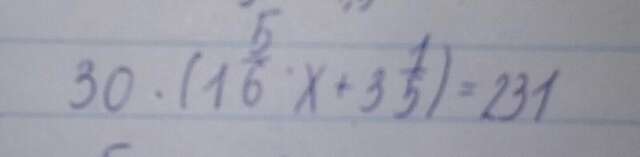 30 · (1 5/6 · x + 3 1/5) = 231